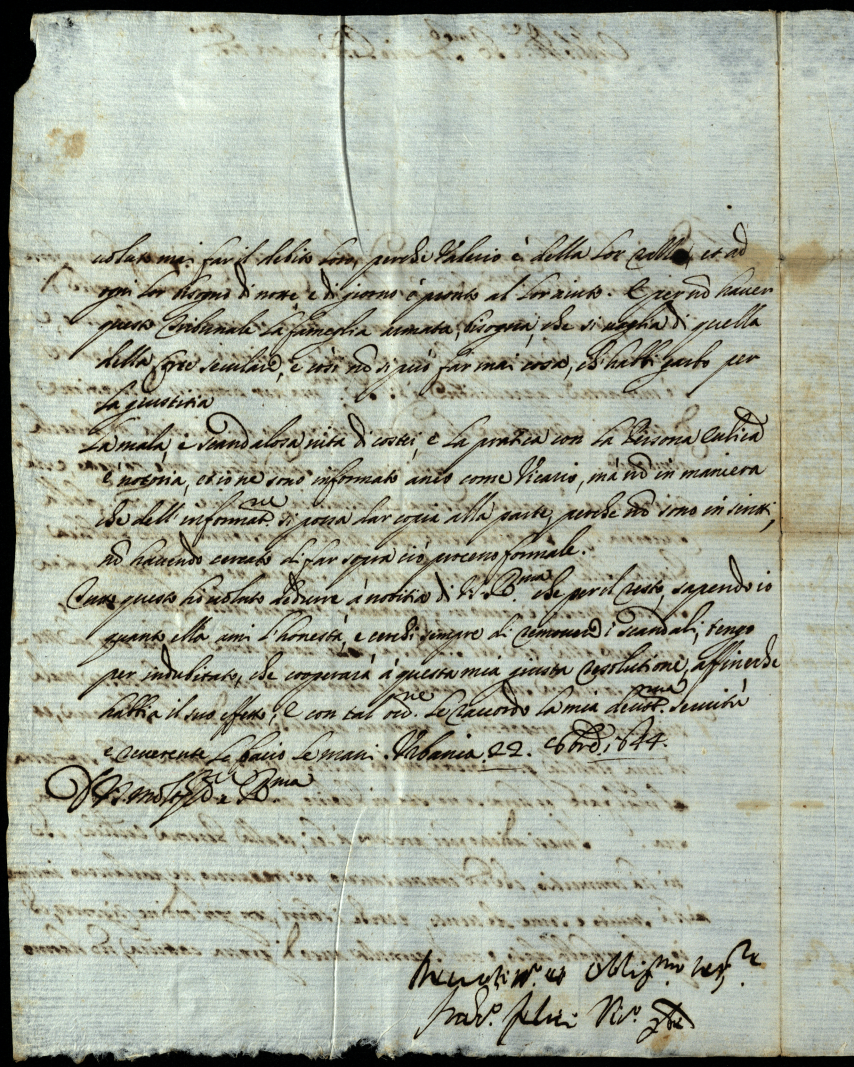 voluto mai far il debito loro, perche Valerio è della lor et ad
ogni lor bisogno di notte e di giorno è pronto al lor aiuto. E per nõ haver
questo Tribunale la fameglia armata, bisogna, che si vaglia di quella
della Corte secolare, e così nõ si può far mai cosa, ch'habbi garbo per
la giustitia
La mala, e scandalosa vita di costei, e la pratica con la Persona
è notoria, et io ne sono informato anco come Vicario, mà nõ in maniera
che dell'informatne si possa dar copia alla parte, perche nõ sono in scritti,
nõ havendo cercato di far sopra ciò processo formale.
Tutto questo hò voluto dedurre à notitia di V. S. Rma che per il resto, sapendo io
quanto ella ami l'honestà, e cerchi sempre di rimovere i scandali, tengo
per indubitato, che cooperarà à questa mia giusta resolutione, affinche
habbia il suo effetto, E con tal le raccordo la mia devotma servitù
e reverente le bacio le mani. Urbania 22. 1644.
Di V. S. Rma
Obligmo
Vico